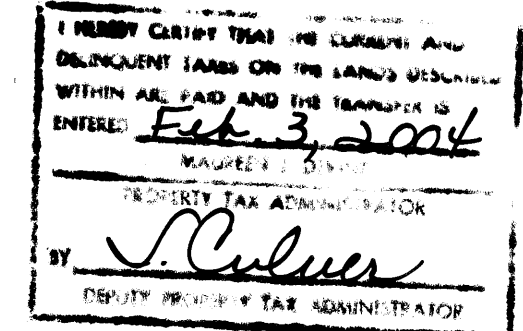 I HEREBY CERTIFY THAT THE CURRENT AND
DELINQUENT TAXES ON THE LANDS DESCRIBED
WITHIN ARE PAID AND THE TRANSFER IS
ENTERED Feb. 3, 2004
MAUREEN
PROPERTY TAX ADMINISTRATOR
BY J. Culver
DEPUTY PROPERTY TAX ADMINISTRATOR